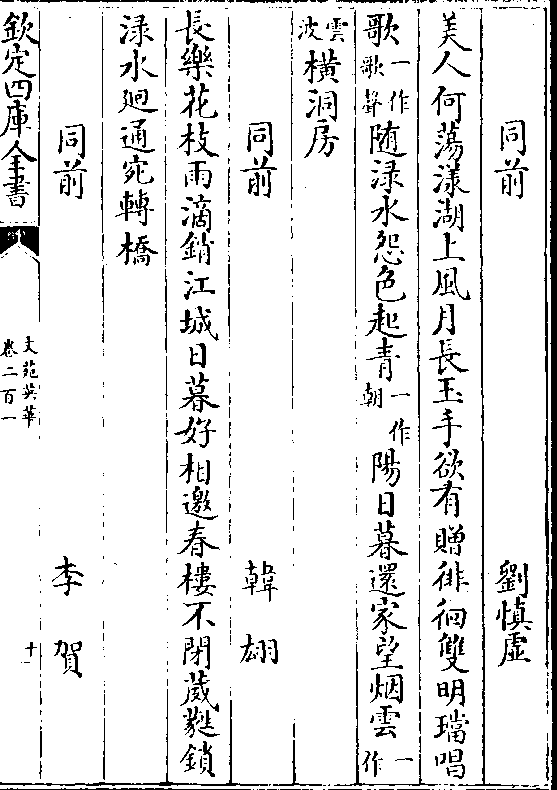 同前 劉慎虛
美人何蕩漾湖上風月長玉手欲有贈徘徊雙明璫唱
歌一作歌聲隨渌水怨色起青一作朝陽日暮還家望烟雲一作
雲波橫洞房
同前 韓翃
長樂花枝雨滴銷江城日暮好相邀春樓不閉葳蕤鎖
渌水廻通宛轉橋
同前 李賀
欽定四庫全書
文苑英華
卷二百一
十一